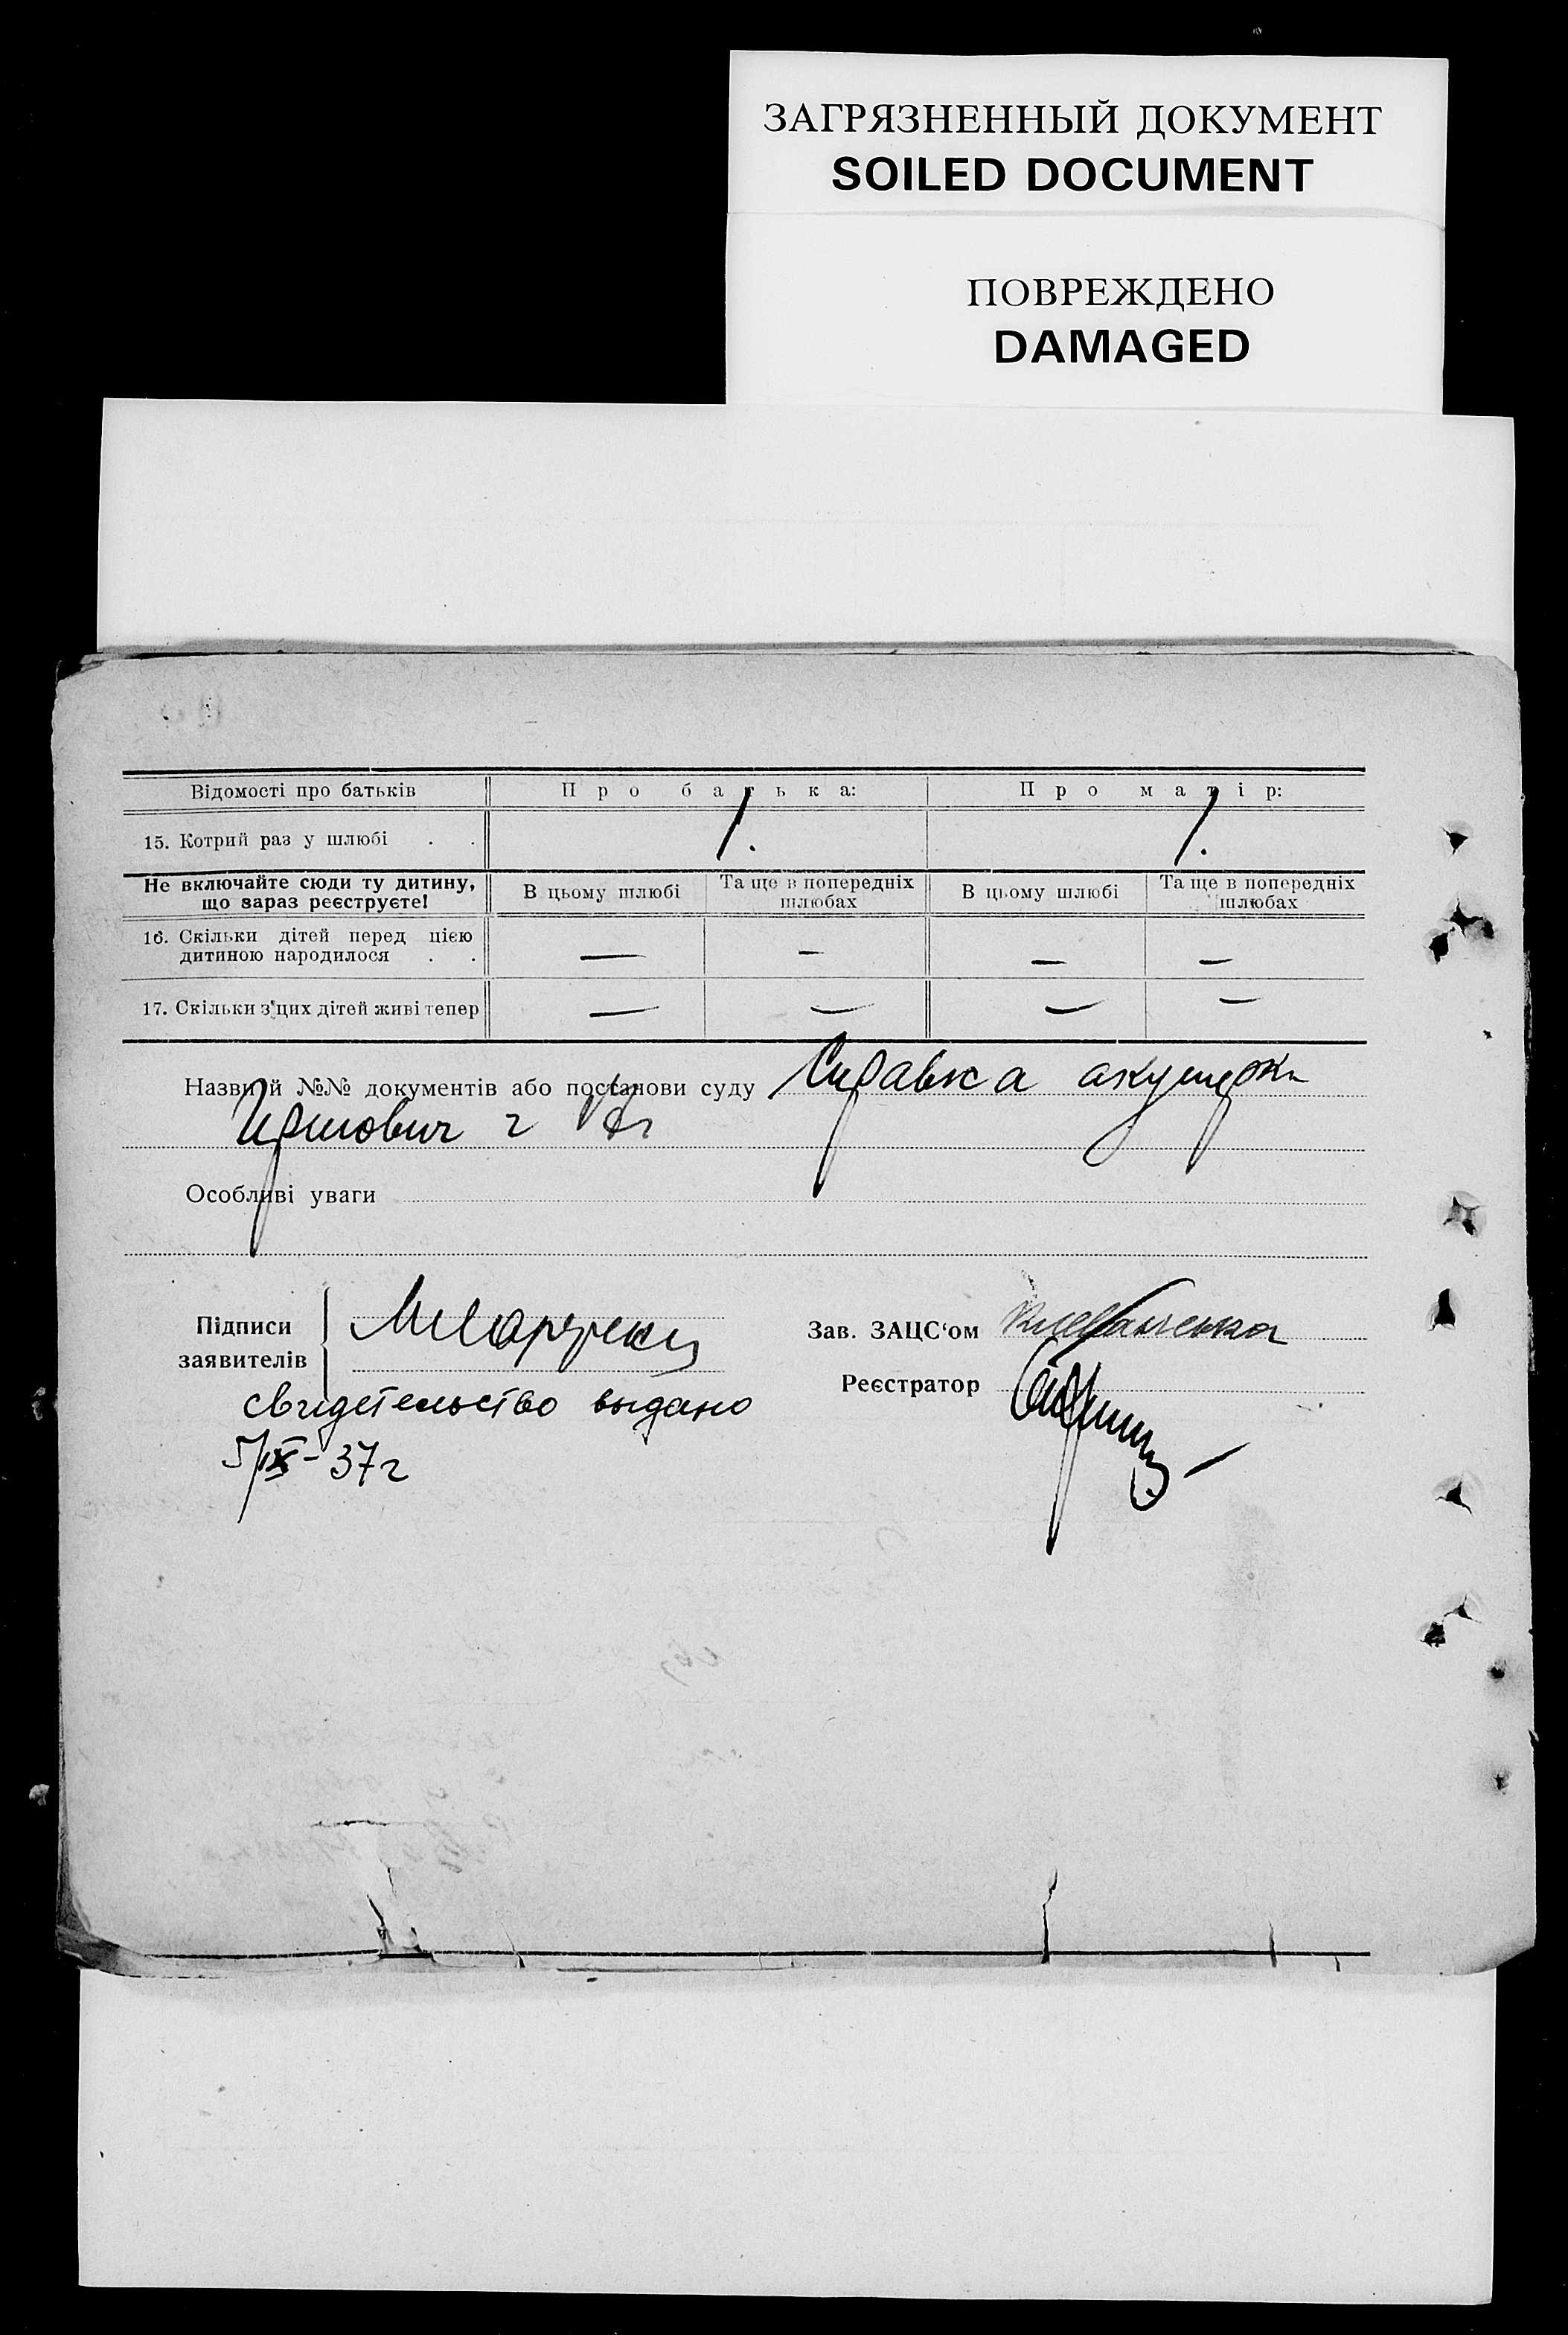 ЗАГРЯЗНЕННЫЙ ДОКУМЕНТ
SOILED DOCUMENT
ПОВРЕЖДЕНО
DAMAGED
Відомості про батьків Про батька: Про матір:
15. Котрий раз у шлюбі . . 1. 1.
Не включайте сюди ту дитину, що зараз реєструєте! В цьому шлюбі Та ще в попередніх шлюбах В цьому шлюбі Та ще в попередніх шлюбах
16. Скільки дітей перед цією
дитиною народилося . . — — — —
17. Скільки з цих дітей живі тепер — — — —
Назви й №№ документів або постанови суду Справка акушерки
Особливі уваги
Підписи
заявителів
Зав. ЗАЦС‘ом
Реєстратор
свидетельство выдано
5/IX-37г